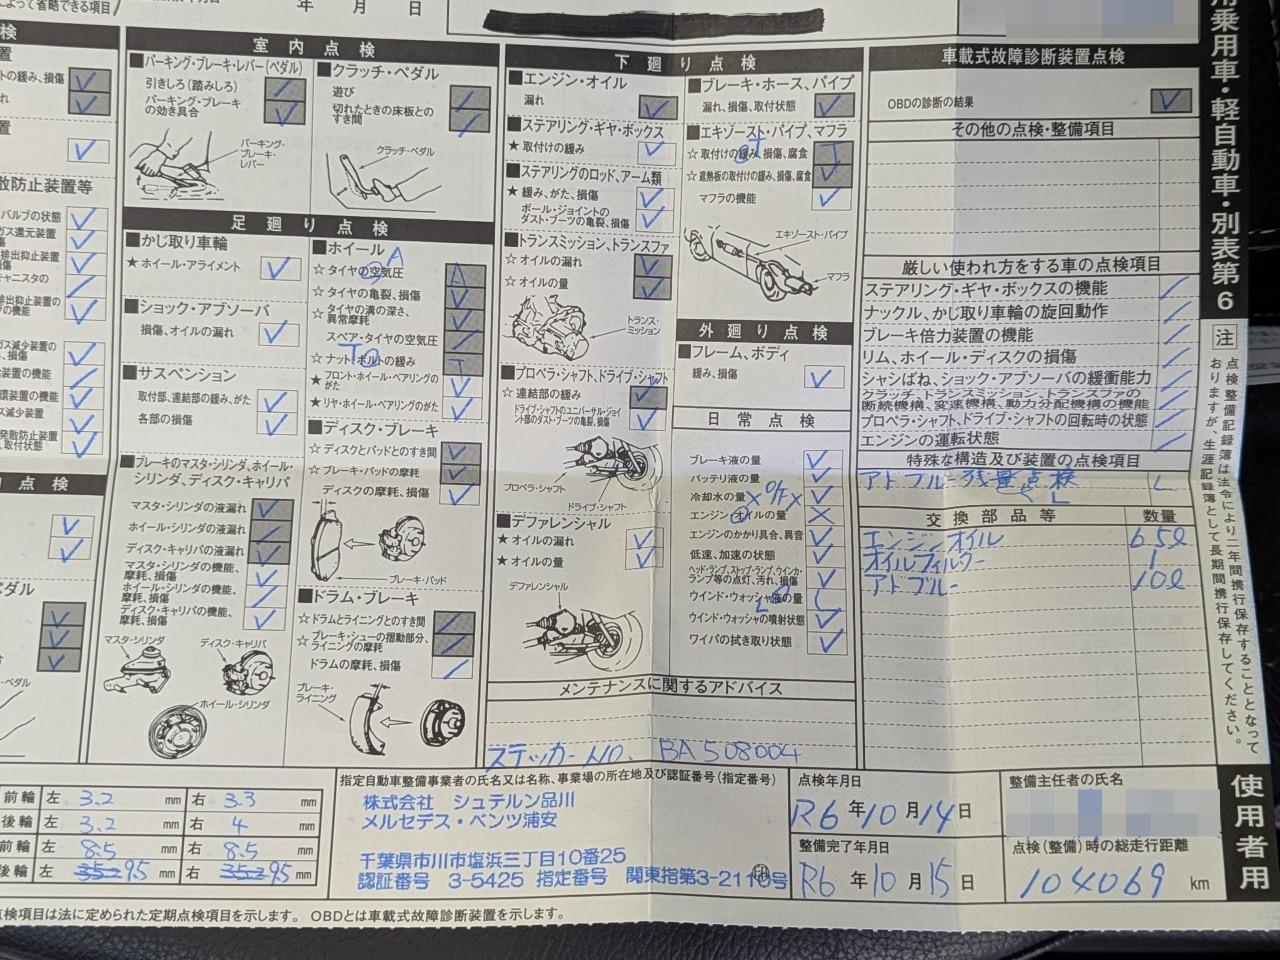 によって省略できる項目
年 月 日
用乗用車・軽自動車・別表第6
検
置
の緩み、損傷
置
散防止装置等
バルブの状態
ガス還元装置
排出抑止装置
損傷
キャニスタの
排出抑止装置の
の機能
ガス減少装置の
損傷
装置の機能
環装置の機能
ス減少装置
発散防止装置
取付状態
点検
ダル
室内点検
■パーキング・ブレーキ・レバー(ペダル)
引きしろ(踏みしろ)
パーキング・ブレーキの効き具合
パーキング・ブレーキ・レバー
■クラッチ・ペダル
遊び
切れたときの床板とのすき間
クラッチ・ペダル
足廻り点検
■かじ取り車輪
★ホイール・アライメント
■ショック・アブソーバ
損傷、オイルの漏れ
■サスペンション
取付部、連結部の緩み、がた
各部の損傷
■ブレーキのマスタ・シリンダ、ホイール・シリンダ、ディスク・キャリパ
マスタ・シリンダの液漏れ
ホイール・シリンダの液漏れ
ディスク・キャリパの液漏れ
マスタ・シリンダの機能、摩耗、損傷
ホイール・シリンダの機能、摩耗、損傷
ディスク・キャリパの機能、摩耗、損傷
マスタ・シリンダ
ディスク・キャリパ
ホイール・シリンダ
■ホイール
A
☆タイヤの空気圧 A
☆タイヤの亀裂、損傷
☆タイヤの溝の深さ、異常摩耗
スペア・タイヤの空気圧
☆ナット、ボルトの緩み T
★フロント・ホイール・ベアリングのがた
★リヤ・ホイール・ベアリングのがた
■ディスク・ブレーキ
☆ディスクとパッドとのすき間
☆ブレーキ・パッドの摩耗
ディスクの摩耗、損傷
ブレーキ・パッド
■ドラム・ブレーキ
☆ドラムとライニングとのすき間
☆ブレーキ・シューの摺動部分、ライニングの摩耗
ドラムの摩耗、損傷
ブレーキ・ライニング
下廻り点検
■エンジン・オイル
漏れ
■ステアリング・ギヤ・ボックス
★取付けの緩み
■ステアリングのロッド、アーム類
★緩み、がた、損傷
ボール・ジョイントのダスト・ブーツの亀裂、損傷
■トランスミッション、トランスファ
☆オイルの漏れ
☆オイルの量
トランス・ミッション
■プロペラ・シャフト、ドライブ・シャフト
☆連結部の緩み
ドライブ・シャフトのユニバーサル・ジョイント部のダスト・ブーツの亀裂、損傷
プロペラ・シャフト
ドライブ・シャフト
■デファレンシャル
★オイルの漏れ
★オイルの量
デファレンシャル
■ブレーキ・ホース、パイプ
漏れ、損傷、取付状態
■エキゾースト・パイプ、マフラ
☆取付けの緩み、損傷、腐食 T
☆遮熱板の取付けの緩み、損傷、腐食
マフラの機能
エキゾースト・パイプ
マフラ
外廻り点検
■フレーム、ボディ
緩み、損傷
日常点検
ブレーキ液の量
バッテリ液の量
冷却水の量
エンジン・オイルの量
エンジンのかかり具合、異音
低速、加速の状態
ヘッド・ランプ、ストップ・ランプ、ウインカ・ランプ等の点灯、汚れ、損傷
ウインド・ウォッシャ液の量
ウインド・ウォッシャの噴射状態
ワイパの拭き取り状態
メンテナンスに関するアドバイス
ステッカーNO. BA508004
車載式故障診断装置点検
OBDの診断の結果
その他の点検・整備項目
厳しい使われ方をする車の点検項目
ステアリング・ギヤ・ボックスの機能
ナックル、かじ取り車輪の旋回動作
ブレーキ倍力装置の機能
リム、ホイール・ディスクの損傷
シャシばね、ショック・アブソーバの緩衝能力
クラッチ、トランスミッション、トランスファの断続機構、変速機構、動力分配機構の機能
プロペラ・シャフト、ドライブ・シャフトの回転時の状態
エンジンの運転状態
特殊な構造及び装置の点検項目
アドブルー残量点検 L
交換部品等 数量
エンジンオイル 6.5ℓ
オイルフィルター 1
アドブルー 10ℓ
注 点検整備記録簿は法令により二年間携行保存することとなっておりますが、生涯記録簿として長期間携行保存してください。
使用者用
前輪 左 3.2 mm 右 3.3 mm
後輪 左 3.2 mm 右 4 mm
前輪 左 8.5 mm 右 8.5 mm
後輪 左 95 mm 右 95 mm
指定自動車整備事業者の氏名又は名称、事業場の所在地及び認証番号(指定番号)
株式会社 シュテルン品川
メルセデス・ベンツ浦安
千葉県市川市塩浜三丁目10番25
認証番号 3-5425 指定番号 関東指第3-2110号
点検年月日
R6年10月14日
整備完了年月日
R6年10月15日
整備主任者の氏名
点検(整備)時の総走行距離
104069 km
点検項目は法に定められた定期点検項目を示します。 OBDとは車載式故障診断装置を示します。